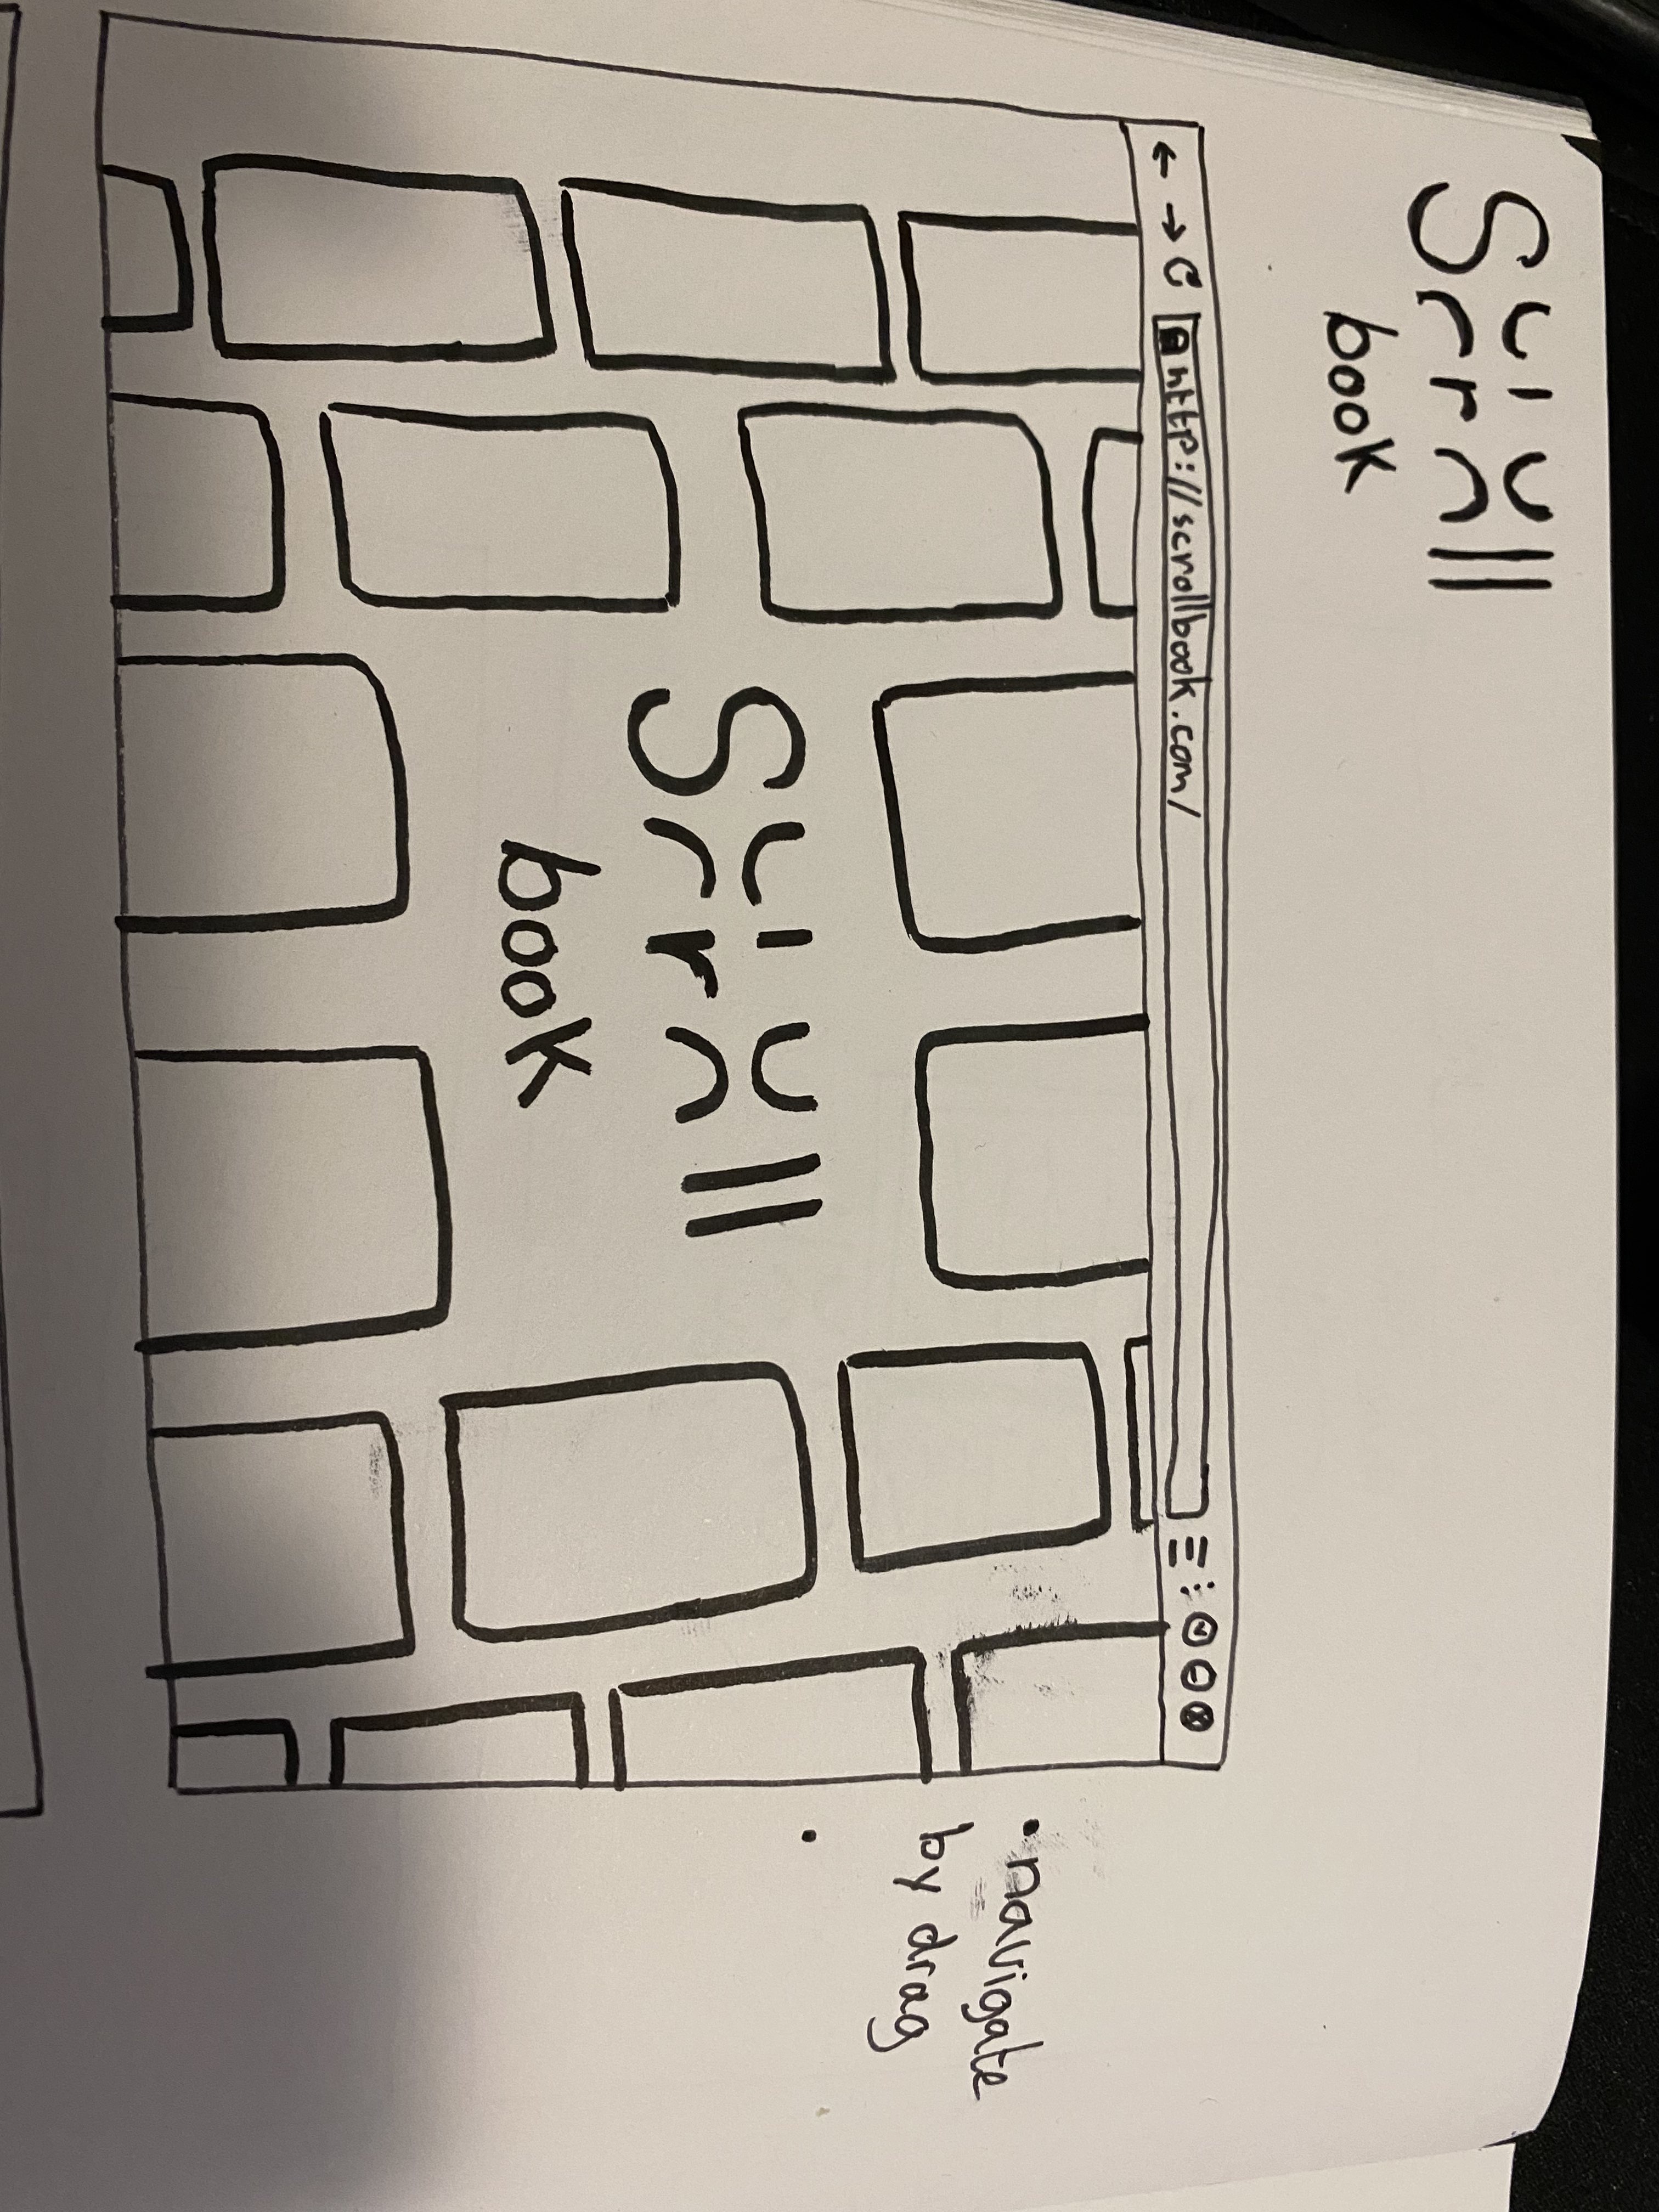 Scroll
book
http://scrollbook.com/
Scroll
book
• navigate
by drag
•